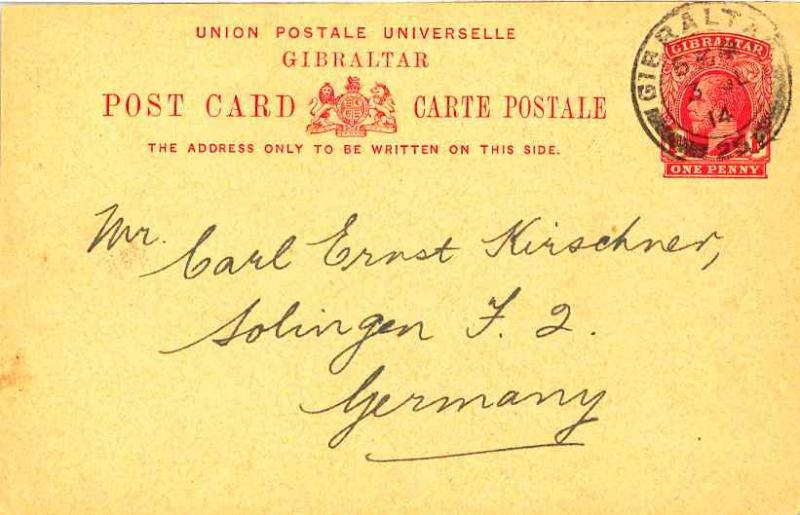 UNION POSTALE UNIVERSELLE
GIBRALTAR
POST CARD CARTE POSTALE
THE ADDRESS ONLY TO BE WRITTEN ON THIS SIDE.
GIBRALTAR
14
GIBRALTAR
ONE PENNY
Mr. Carl Ernst Kirschner,
Solingen F. 2.
Germany